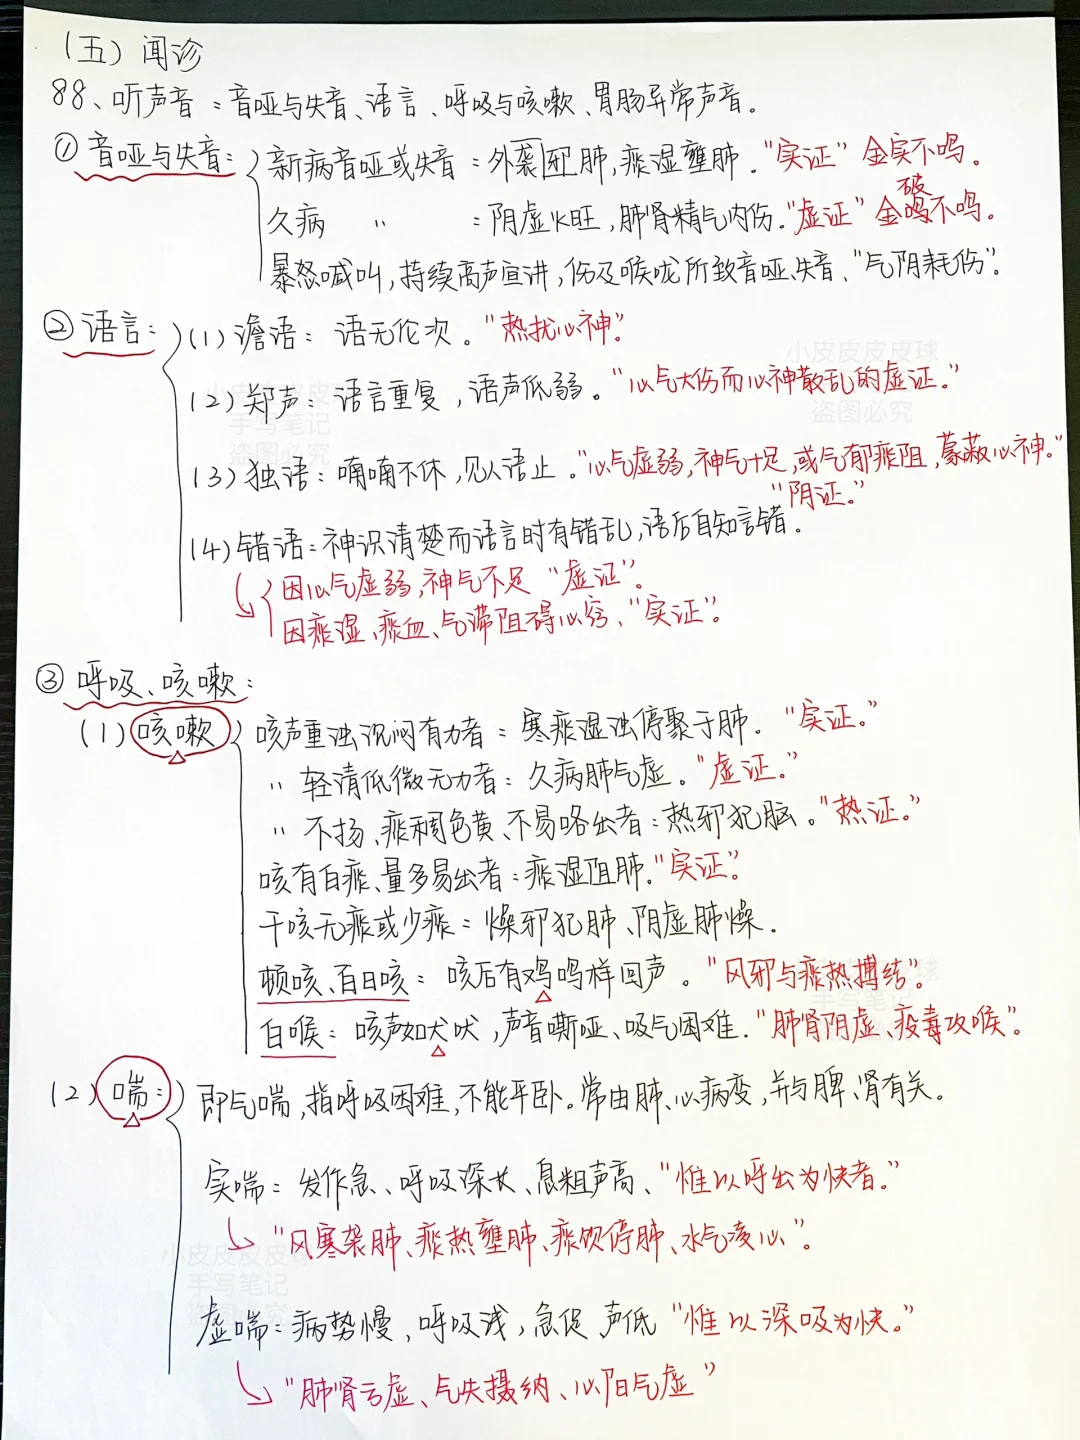 （五）闻诊
88、听声音：音哑与失音、语言、呼吸与咳嗽、胃肠异常声音。
①音哑与失音：新病音哑或失音：外袭邪肺，痰湿壅肺。“实证”金实不鸣。
破
久病 〃 ：阴虚火旺，肺肾精气内伤。“虚证”金鸣不鸣。
暴怒喊叫，持续高声宣讲，伤及喉咙所致音哑、失音、“气阴耗伤”。
②语言：（1）谵语：语无伦次。“热扰心神”。
小皮皮皮皮球
盗图必究
（2）郑声：语言重复，语声低弱。“心气大伤而心神散乱的虚证。”
手写笔记
盗图必究
（3）独语：喃喃不休，见人语止。“心气虚弱，神气不足，或气郁痰阻，蒙蔽心神。”
“阴证。”
（4）错语：神识清楚而语言时有错乱，语后自知言错。
因心气虚弱，神气不足“虚证”。
因痰湿、瘀血、气滞阻碍心窍、“实证”。
③呼吸、咳嗽：
（1）咳嗽 咳声重浊沉闷有力者：寒痰湿浊停聚于肺。“实证。”
〃 轻清低微无力者：久病肺气虚。“虚证。”
〃 不扬、痰稠色黄、不易咯出者：热邪犯脑。“热证。”
咳有白痰、量多易出者：痰湿阻肺.“实证”.
干咳无痰或少痰：燥邪犯肺、阴虚肺燥.
顿咳、百日咳：咳后有鸡鸣样回声。“风邪与痰热搏结”。
白喉：咳声如犬吠，声音嘶哑、吸气困难.“肺肾阴虚、疫毒攻喉”。
（2）喘：即气喘，指呼吸困难，不能平卧。常由肺、心病变，并与脾、肾有关。
实喘：发作急、呼吸深长、息粗声高、“惟以呼出为快者。”
“风寒袭肺、痰热壅肺、痰饮停肺、水气凌心”。
小皮皮皮皮球
手写笔记
盗图必究
虚喘：病势慢，呼吸浅，急促声低“惟以深吸为快。”
“肺肾亏虚、气失摄纳、心阳气虚”